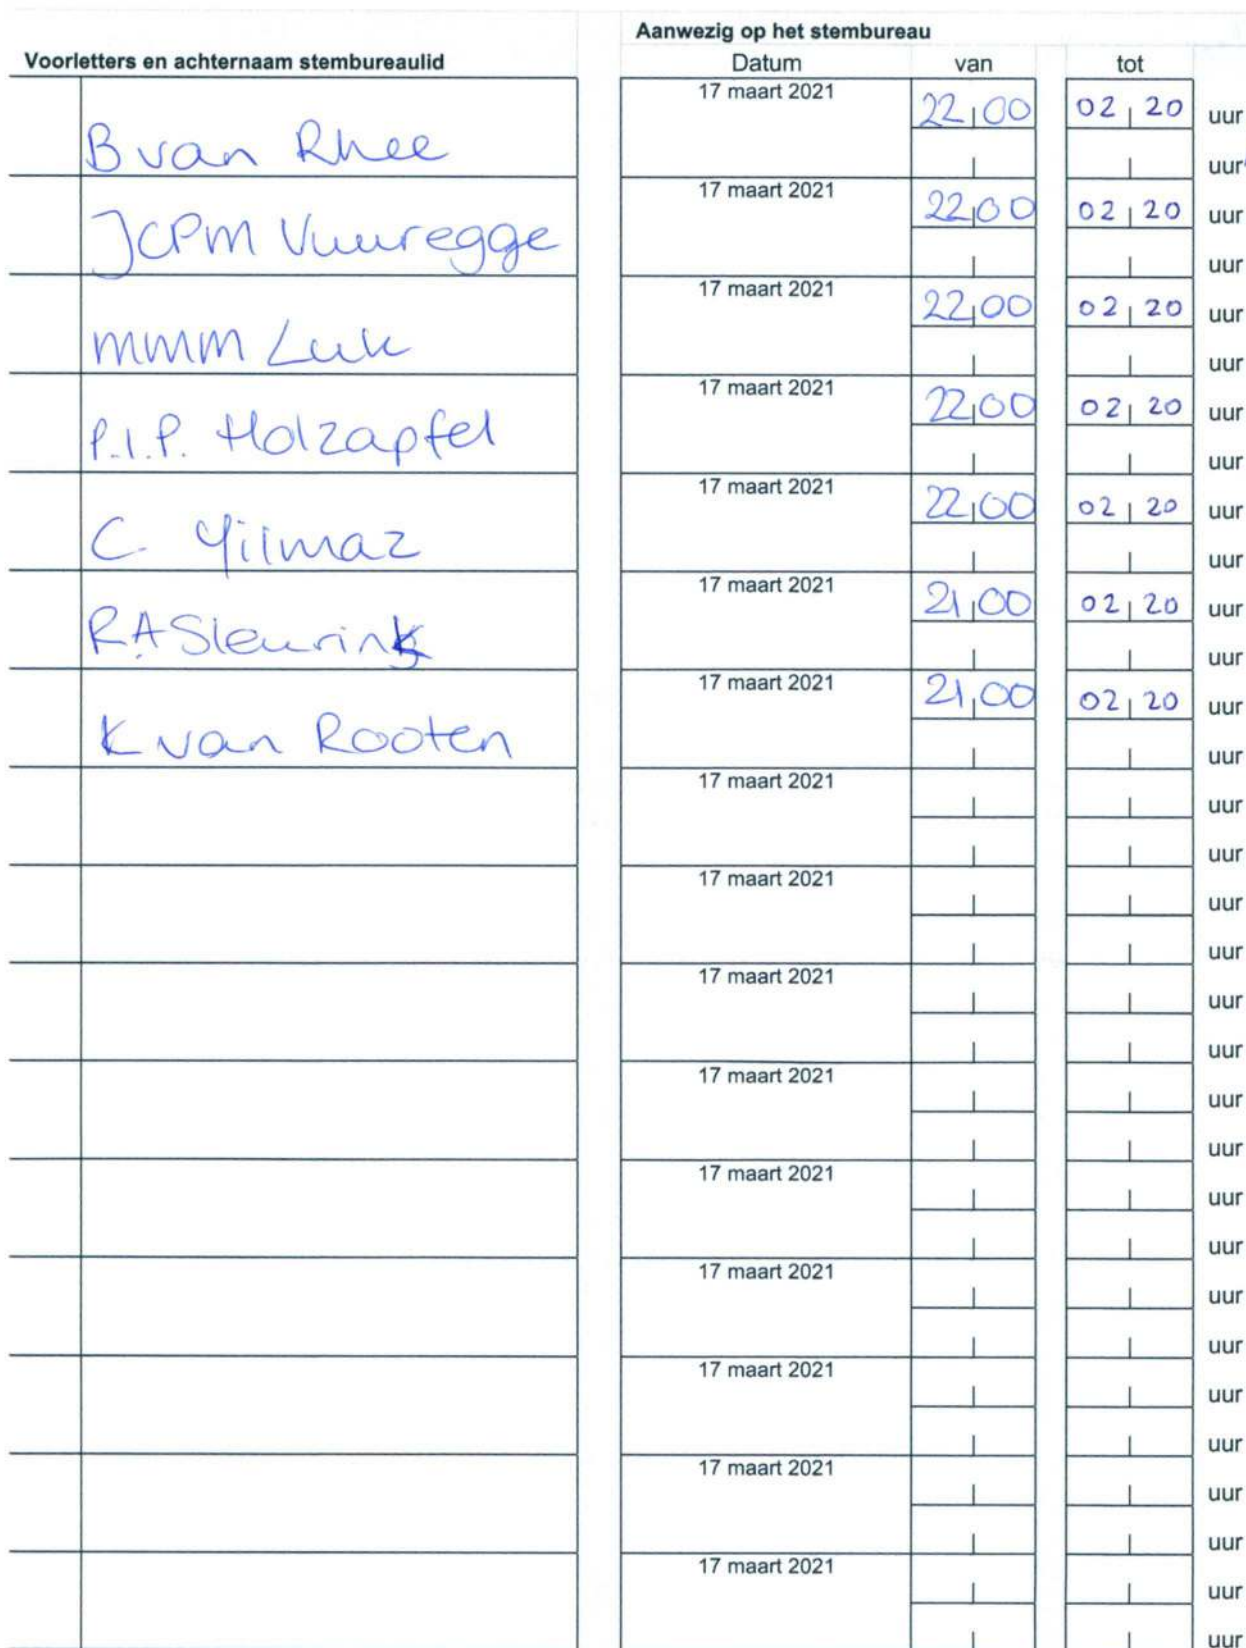 Aanwezig op het stembureau
Voorletters en achternaam stembureaulid Datum van tot
17 maart 2021 22 00 02 20 uur
B van Rhee uur
17 maart 2021 22 00 02 20 uur
JCPM Vuuregge uur
17 maart 2021 22 00 02 20 uur
MMM Luk uur
17 maart 2021 22 00 02 20 uur
P.I.P. Holzapfel uur
17 maart 2021 22 00 02 20 uur
C. Yilmaz uur
17 maart 2021 21 00 02 20 uur
RA Sleurink uur
17 maart 2021 21 00 02 20 uur
K van Rooten uur
17 maart 2021 uur
uur
17 maart 2021 uur
uur
17 maart 2021 uur
uur
17 maart 2021 uur
uur
17 maart 2021 uur
uur
17 maart 2021 uur
uur
17 maart 2021 uur
uur
17 maart 2021 uur
uur
17 maart 2021 uur
uur